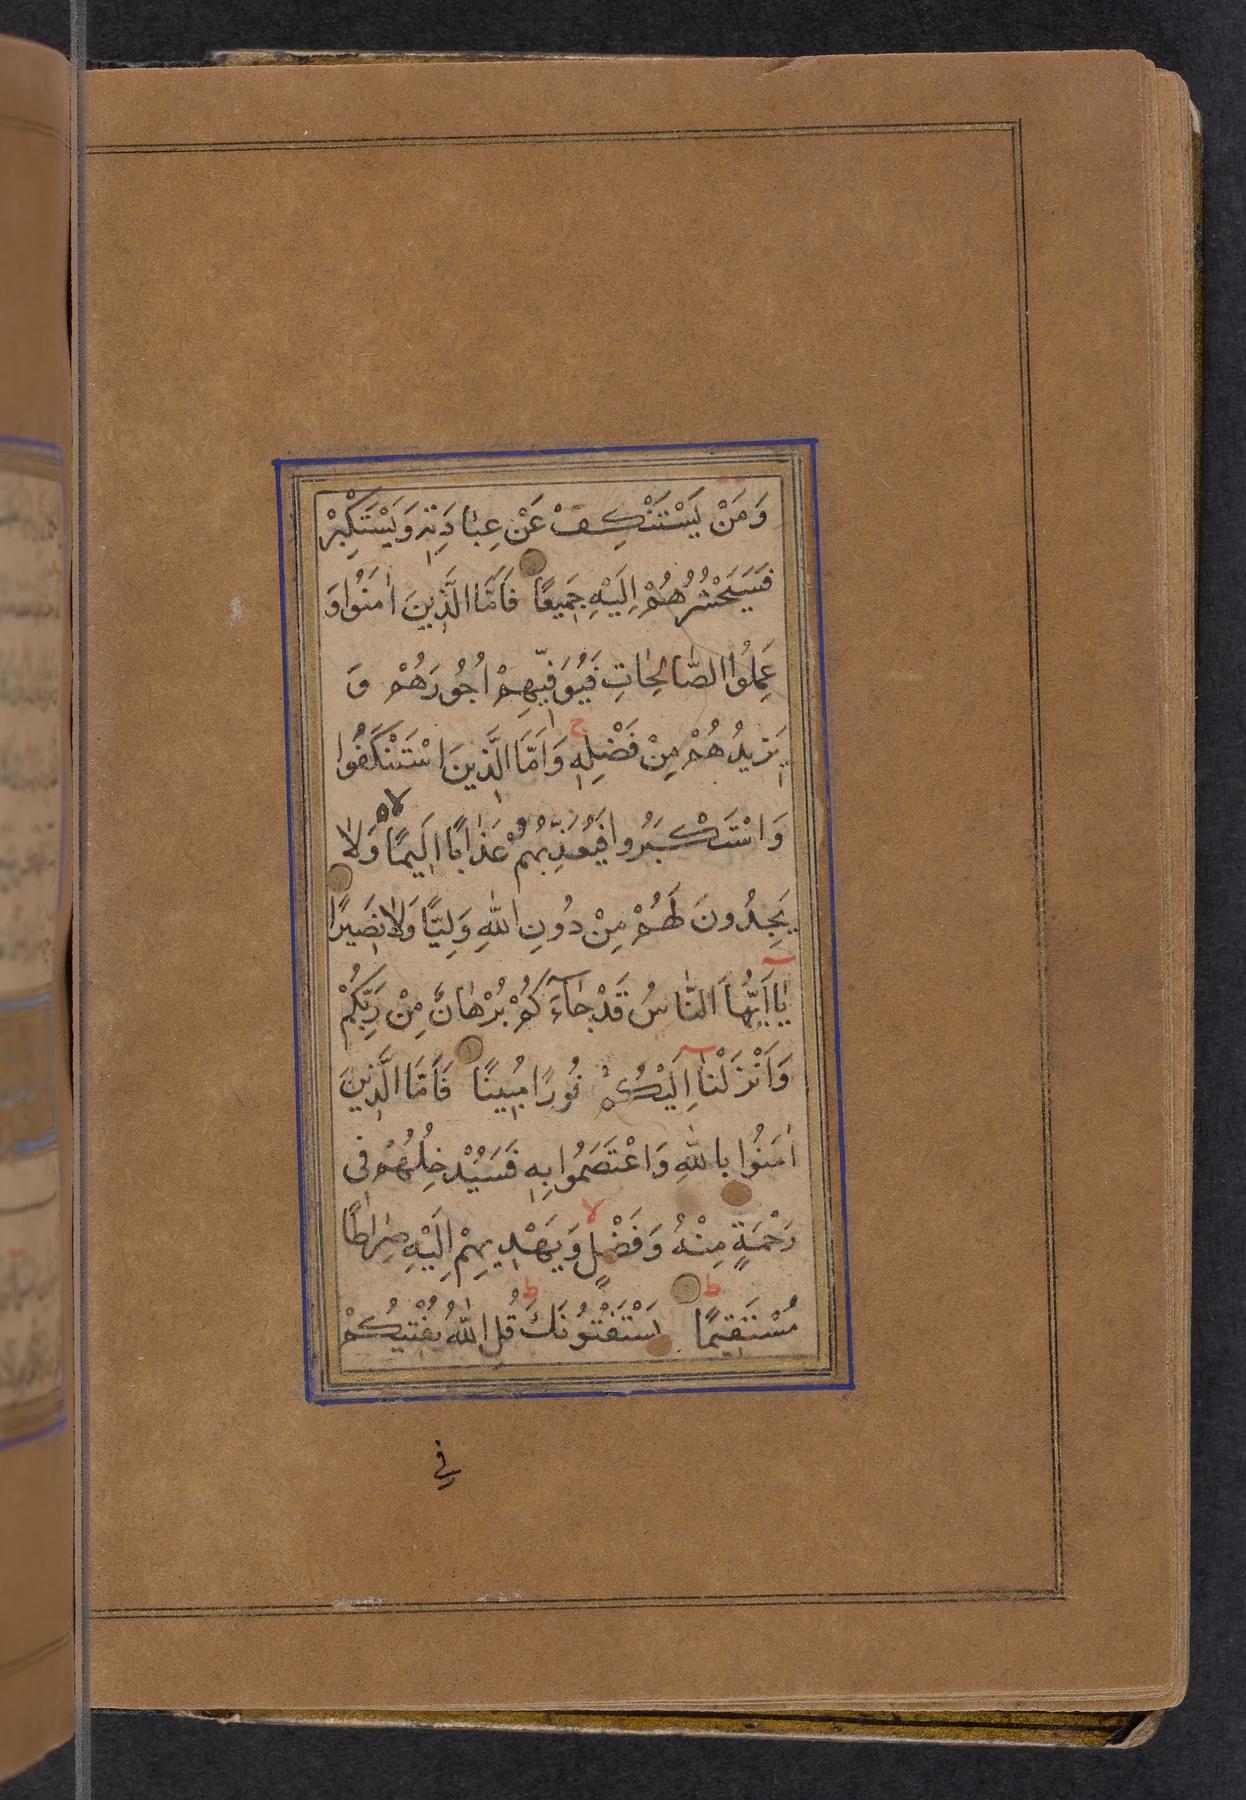 وَمَنْ يَسْتَنْكِفْ عَنْ عِبَادَتِهِ وَيَسْتَكْبِرْ
فَسَيَحْشُرُهُمْ اِلَيْهِ جَمِيعًا فَاَمَّا الَّذِينَ اٰمَنُوا وَ
عَمِلُوا الصَّالِحَاتِ فَيُوَفِّيهِمْ اُجُورَهُمْ وَ
يَزِيدُهُمْ مِنْ فَضْلِهِ ج وَاَمَّا الَّذِينَ اسْتَنْكَفُوا
وَاسْتَكْبَرُوا فَيُعَذِّبُهُمْ عَذَابًا اَلِيمًا لا وَلَا
يَجِدُونَ لَهُمْ مِنْ دُونِ اللّٰهِ وَلِيًّا وَلَا نَصِيرًا
يَا اَيُّهَا النَّاسُ قَدْ جَاءَكُمْ بُرْهَانٌ مِنْ رَبِّكُمْ
وَاَنْزَلْنَا اِلَيْكُمْ نُورًا مُبِينًا فَاَمَّا الَّذِينَ
اٰمَنُوا بِاللّٰهِ وَاعْتَصَمُوا بِهِ فَسَيُدْخِلُهُمْ فِى
رَحْمَةٍ مِنْهُ وَفَضْلٍ لا وَيَهْدِيهِمْ اِلَيْهِ صِرَاطًا
مُسْتَقِيمًا ط يَسْتَفْتُونَكَ ط قُلِ اللّٰهُ يُفْتِيكُمْ
فِي